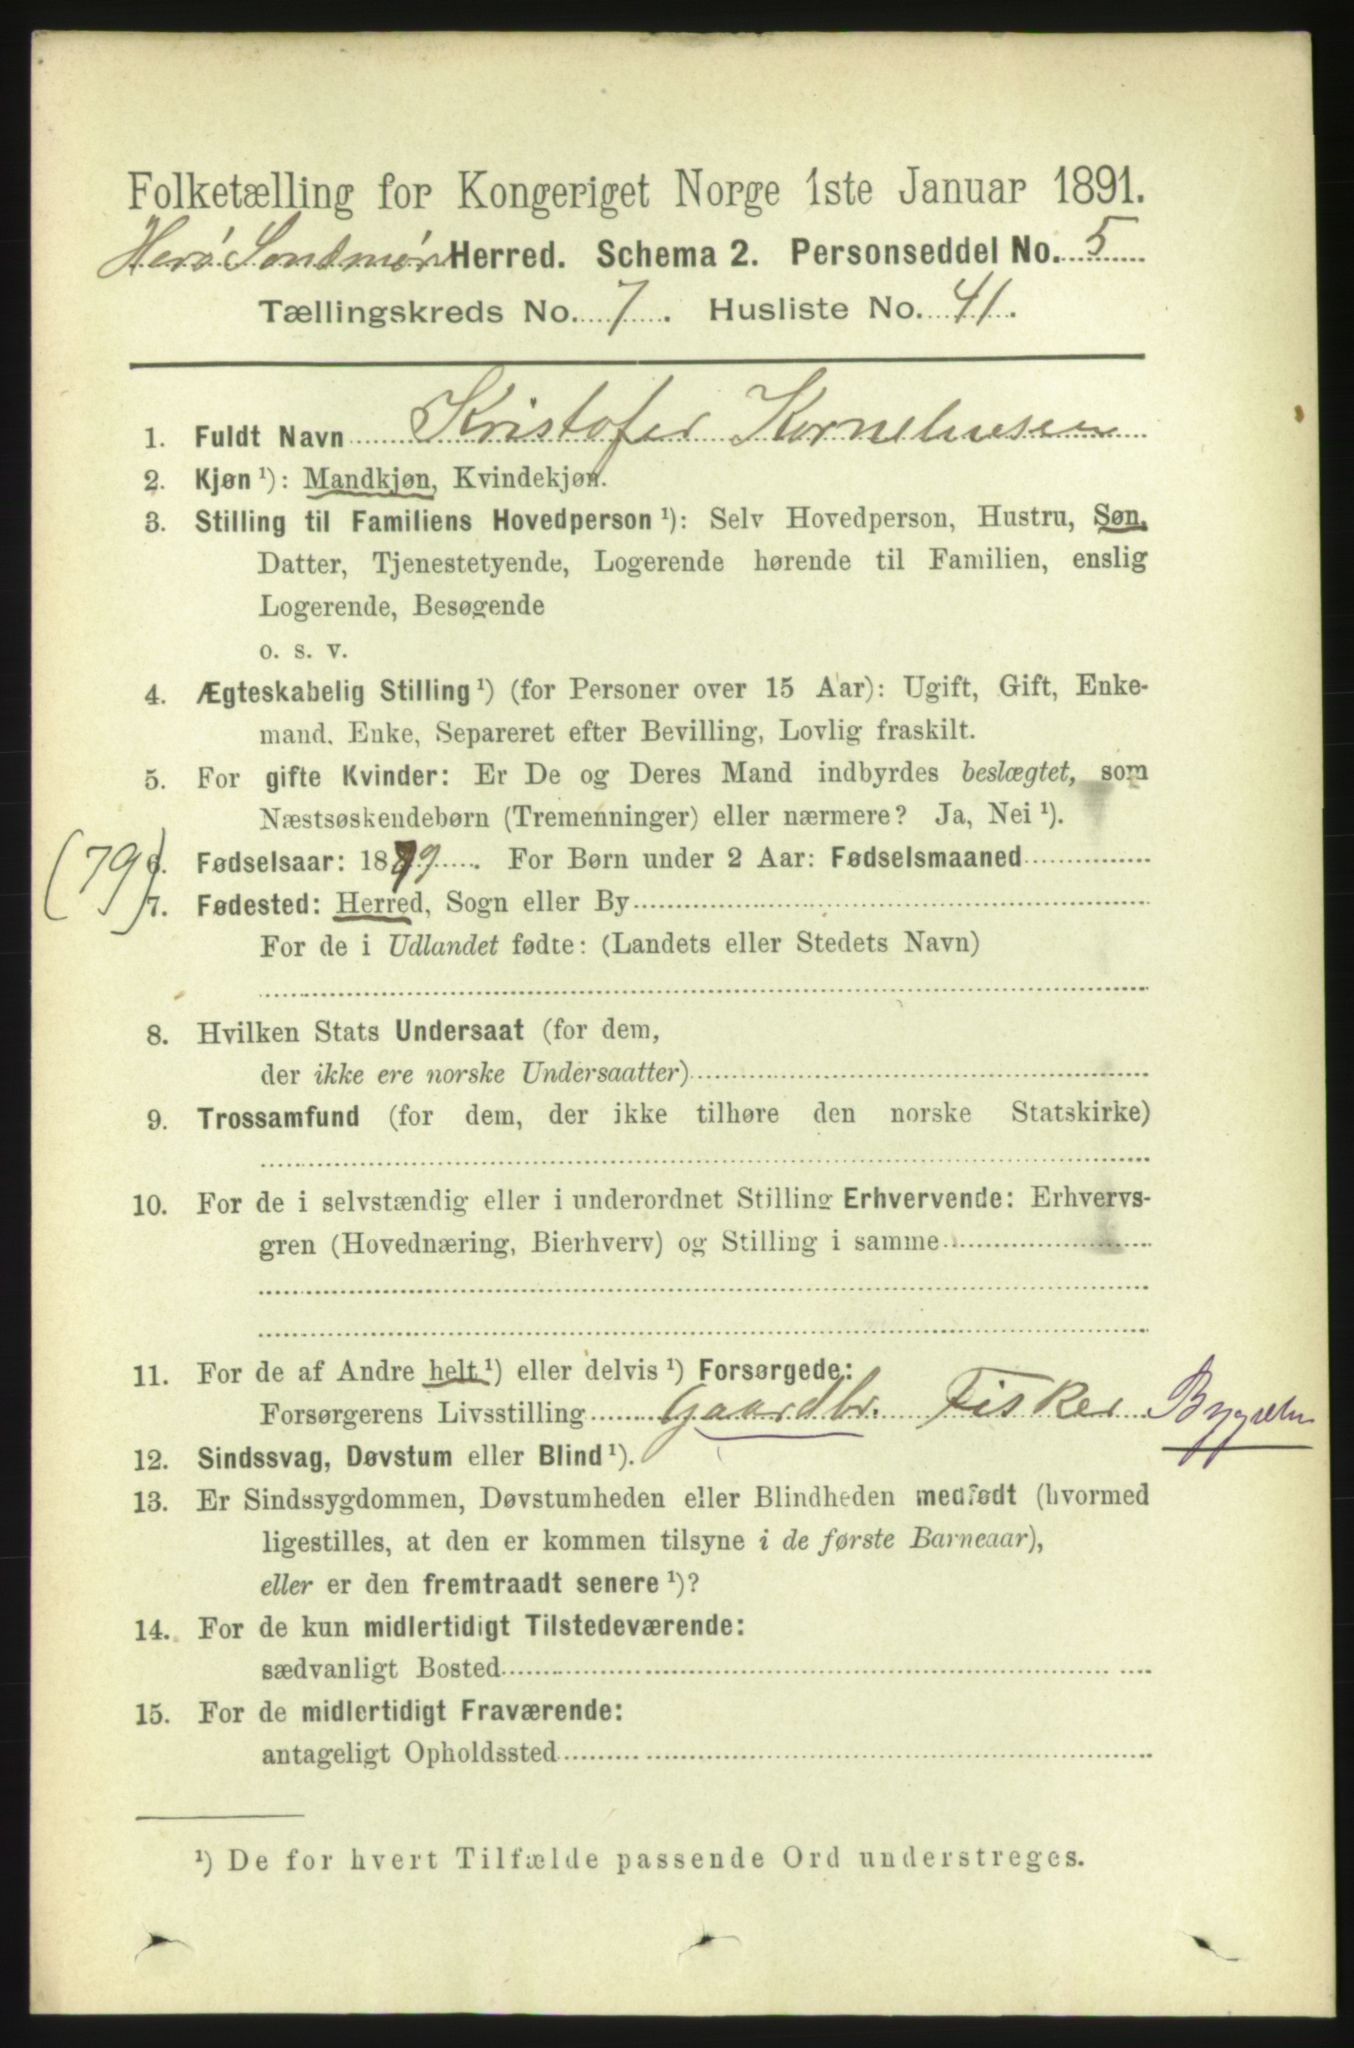 Folketælling for Kongeriget Norge 1ste Januar 1891.
Herø Søndmøre Herred. Schema 2. Personseddel No. 5
Tællingskreds No. 7. Husliste No. 41.
1. Fuldt Navn Kristofer Korneliusen
2. Kjøn ¹): Mandkjøn, Kvindekjøn.
3. Stilling til Familiens Hovedperson ¹): Selv Hovedperson, Hustru, Søn,
Datter, Tjenestetyende, Logerende hørende til Familien, enslig
Logerende, Besøgende
o. s. v.
4. Ægteskabelig Stilling ¹) (for Personer over 15 Aar): Ugift, Gift, Enke-
mand, Enke, Separeret efter Bevilling, Lovlig fraskilt.
5. For gifte Kvinder: Er De og Deres Mand indbyrdes beslægtet, som
Næstsøskendebørn (Tremenninger) eller nærmere? Ja, Nei ¹).
(79)
6. Fødselsaar: 1879. For Børn under 2 Aar: Fødselsmaaned
7. Fødested: Herred, Sogn eller By
For de i Udlandet fødte: (Landets eller Stedets Navn)
8. Hvilken Stats Undersaat (for dem,
der ikke ere norske Undersaatter)
9. Trossamfund (for dem, der ikke tilhøre den norske Statskirke)
10. For de i selvstændig eller i underordnet Stilling Erhvervende: Erhvervs-
gren (Hovednæring, Bierhverv) og Stilling i samme
11. For de af Andre helt ¹) eller delvis ¹) Forsørgede:
Forsørgerens Livsstilling Gaardbr. Fisker
12. Sindssvag, Døvstum eller Blind ¹).
13. Er Sindssygdommen, Døvstumheden eller Blindheden medfødt (hvormed
ligestilles, at den er kommen tilsyne i de første Barneaar),
eller er den fremtraadt senere ¹)?
14. For de kun midlertidigt Tilstedeværende:
sædvanligt Bosted
15. For de midlertidigt Fraværende:
antageligt Opholdssted
¹) De for hvert Tilfælde passende Ord understreges.